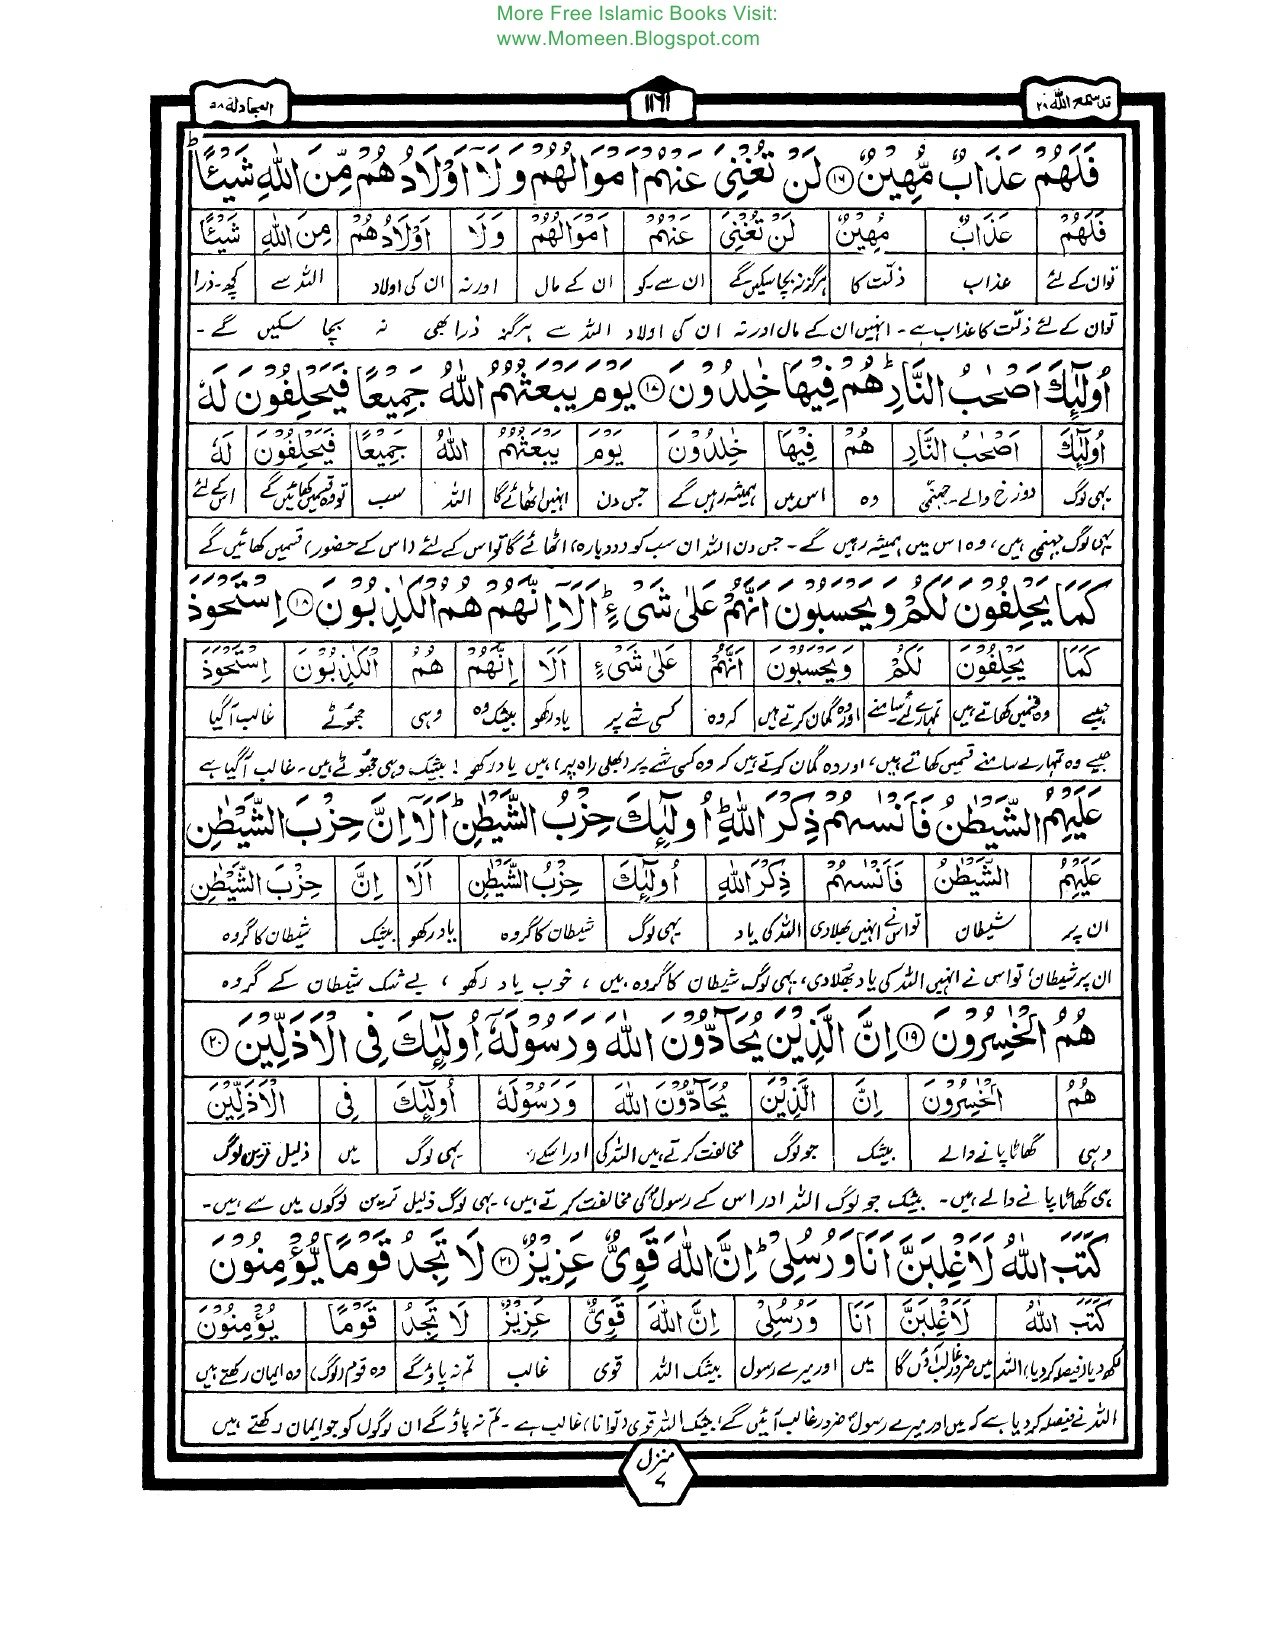 More Free Islamic Books Visit:
www.Momeen.Blogspot.com
قد سمع الله ٢٨
١١٦١
المجادلة ٥٨
فَلَهُمْ عَذَابٌ مُّهِينٌ ۝١٦ لَنْ تُغْنِيَ عَنْهُمْ أَمْوَالُهُمْ وَلَا أَوْلَادُهُمْ مِّنَ اللّٰهِ شَيْئًا ط
فَلَهُمْ عَذَابٌ مُهِينٌ لَنْ تُغْنِيَ عَنْهُمْ أَمْوَالُهُمْ وَلَا أَوْلَادُهُمْ مِنَ اللّٰهِ شَيْئًا
توان کے لئے عذاب ذلّت کا ہرگز نہ بچا سکیں گے ان سے۔کو ان کے مال اور نہ ان کی اولاد اللہ سے کچھ۔ذرا
توان کے لئے ذلّت کا عذاب ہے۔ انہیں ان کے مال اور نہ ان کی اولاد اللہ سے ہرگز ذرا بھی نہ بچا سکیں گے۔
أُولٰٓئِكَ أَصْحٰبُ النَّارِ ط هُمْ فِيهَا خٰلِدُونَ ۝١٧ يَوْمَ يَبْعَثُهُمُ اللّٰهُ جَمِيعًا فَيَحْلِفُونَ لَهُ
أُولٰٓئِكَ أَصْحٰبُ النَّارِ هُمْ فِيهَا خٰلِدُونَ يَوْمَ يَبْعَثُهُمُ اللّٰهُ جَمِيعًا فَيَحْلِفُونَ لَهُ
یہی لوگ دوزخ والے۔جہنمی وہ اس میں ہمیشہ رہیں گے جس دن انہیں اٹھائے گا اللہ سب تو وہ قسمیں کھائیں گے اس کے لئے
یہی لوگ جہنمی ہیں، وہ اس میں ہمیشہ رہیں گے۔ جس دن اللہ ان سب کو (دوبارہ) اٹھائے گا تو اس کے لئے (اس کے حضور) قسمیں کھائیں گے
كَمَا يَحْلِفُونَ لَكُمْ وَيَحْسَبُونَ أَنَّهُمْ عَلٰى شَيْءٍ ط أَلَا إِنَّهُمْ هُمُ الْكٰذِبُونَ ۝١٨ اِسْتَحْوَذَ
كَمَا يَحْلِفُونَ لَكُمْ وَيَحْسَبُونَ أَنَّهُمْ عَلٰى شَيْءٍ أَلَا إِنَّهُمْ هُمُ الْكٰذِبُونَ اِسْتَحْوَذَ
جیسے وہ قسمیں کھاتے ہیں تمہارے لئے سامنے اور وہ گمان کرتے ہیں کہ وہ کسی شے پر یاد رکھو بیشک وہ وہی جھوٹے غالب آگیا
جیسے وہ تمہارے سامنے قسمیں کھاتے ہیں، اور وہ گمان کرتے ہیں کہ وہ کسی شے پر (بھلی راہ پر) ہیں یاد رکھو! بیشک وہی جھوٹے ہیں۔ غالب آگیا ہے
عَلَيْهِمُ الشَّيْطٰنُ فَأَنْسٰهُمْ ذِكْرَ اللّٰهِ ط أُولٰٓئِكَ حِزْبُ الشَّيْطٰنِ ط أَلَا إِنَّ حِزْبَ الشَّيْطٰنِ
عَلَيْهِمُ الشَّيْطٰنُ فَأَنْسٰهُمْ ذِكْرَ اللّٰهِ أُولٰٓئِكَ حِزْبُ الشَّيْطٰنِ أَلَا إِنَّ حِزْبَ الشَّيْطٰنِ
ان پر شیطان تو اس نے انہیں بھلا دی اللہ کی یاد یہی لوگ شیطان کا گروہ یاد رکھو بیشک شیطان کا گروہ
ان پر شیطان، تو اس نے انہیں اللہ کی یاد بھلا دی، یہی لوگ شیطان کا گروہ ہیں، خوب یاد رکھو، بے شک شیطان کے گروہ
هُمُ الْخٰسِرُونَ ۝١٩ إِنَّ الَّذِينَ يُحَآدُّونَ اللّٰهَ وَرَسُولَهُ أُولٰٓئِكَ فِي الْأَذَلِّينَ ۝٢٠
هُمُ الْخٰسِرُونَ إِنَّ الَّذِينَ يُحَآدُّونَ اللّٰهَ وَرَسُولَهُ أُولٰٓئِكَ فِي الْأَذَلِّينَ
وہی گھاٹا پانے والے بیشک جو لوگ مخالفت کرتے ہیں اللہ کی اور اسکے یہی لوگ میں ذلیل ترین لوگ
ہی گھاٹا پانے والے ہیں۔ بیشک جو لوگ اللہ اور اس کے رسولؐ کی مخالفت کرتے ہیں، یہی لوگ ذلیل ترین لوگوں میں سے ہیں۔
كَتَبَ اللّٰهُ لَأَغْلِبَنَّ أَنَا وَرُسُلِي ط إِنَّ اللّٰهَ قَوِيٌّ عَزِيزٌ ۝٢١ لَا تَجِدُ قَوْمًا يُّؤْمِنُونَ
كَتَبَ اللّٰهُ لَأَغْلِبَنَّ أَنَا وَرُسُلِي إِنَّ اللّٰهَ قَوِيٌّ عَزِيزٌ لَا تَجِدُ قَوْمًا يُؤْمِنُونَ
لکھ دیا (فیصلہ کر دیا) اللہ میں ضرور غالب آؤں گا میں اور میرے رسول بیشک اللہ قوی غالب تم نہ پاؤ گے وہ قوم (لوگ) وہ ایمان رکھتے ہیں
اللہ نے فیصلہ کر دیا ہے کہ میں اور میرے رسولؐ ضرور غالب آئیں گے، بیشک اللہ قوی (توانا) غالب ہے۔ تم نہ پاؤ گے ان لوگوں کو جو ایمان رکھتے ہیں
منزل ٧